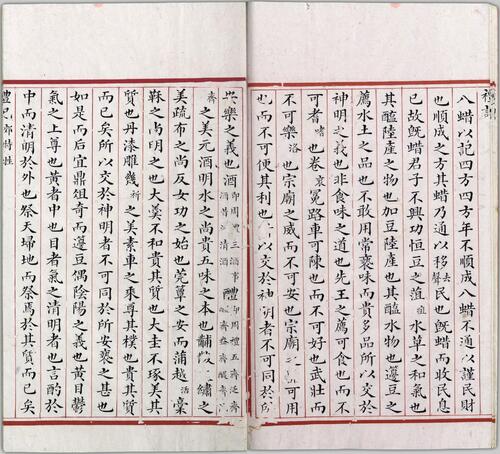 八蜡以記四方四方年不順成八蜡不通以謹民財
也順成之方其蜡乃通以移去聲民也既蜡而收民息
已故既蜡君子不興功恒豆之菹水草之和氣也
其醢陸產之物也加豆陸產也其醢水物也籩豆之
薦水土之品也不敢用常褻味而貴多品所以交於
神明之義也非食味之道也先王之薦可食也而不
可耆嗜也卷衮冕路車可陳也而不可好也武壯而
不可樂洛也宗廟之威而不可安也宗廟之可用
也而不可便其利也以交於神明者不可同於所
樂之義也酒即周禮三酒事酒昔酒清酒醴即周禮五齊泛齊
齊之美元酒明水之尚貴五味之本也黼黻繡之
美疏布之尚反女功之始也莞簟之安而蒲越活稾
鞂之尚明之也大羹不和貴其質也大圭不琢美其
質也丹漆雕幾祈之美素車之乘尊其樸也貴其質
而已矣所以交於神明者不可同於所安褻之甚也
如是而后宜鼎俎奇而籩豆偶陰陽之義也黃目鬱
氣之上尊也黃者中也目者氣之清明者也言酌於
中而清明於外也祭天埽地而祭焉於其質而已矣
禮記 郊特牲